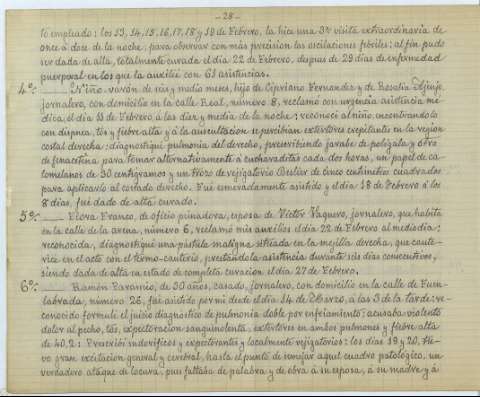 - 28 -
to empleado: los 13, 14, 15, 16, 17, 18 y 19 de Febrero, la hice una 3ª visita extraordinaria de
once á doce de la noche, para observar con más precision las oscilaciones febriles: al fin pudo
ser dada de alta, totalmente curada el día 22 de Febrero, despues de 29 días de enfermedad
puerperal en los que la auxilié con 63 asistencias.
4º: Niño varón de seis y medio meses, hijo de Cipriano Fernandez y de Rosalia
jornalero, con domicilio en la calle Real, número 8, reclamó con urgencia asistencia mé-
dica el día de Febrero á las diez y media de la noche: reconocí al niño, encontrandolo
con dispnea, tós y fiebre alta y á la auscultacion se percibian extertores crepitantes en la region
costal derecha: diagnostiqué pulmonía del derecho, prescribiendo jarabe de poligala y otro
de fenacetina para tomar alternativamente á cucharaditas cada dos horas, un papel de ca-
lomelanos de 30 centigramos y un trozo de vejigatorio de cinco centimetros cuadrados
para aplicarlo al costado derecho. Fué esmeradamente asistido y el día 18 de Febrero á los
8 días, fué dado de alta curado.
5º: Flora Franco, de oficio peinadora, esposa de Victor Vaquero, jornalero, que habita
en la calle de la arena, número 6, reclamó mis auxilios el día 22 de Febrero al mediodia:
reconocida, diagnostiqué una pústula maligna situada en la mejilla derecha, que caute-
ricé en el acto con el termo-cauterio, prestándola asistencia durante seis días consecutivos,
siendo dada de alta en estado de completa curacion el día 27 de Febrero.
6º: Ramón Paramio, de 30 años, casado, jornalero, con domicilio en la calle de Fuen-
labrada, número 26, fué asistido por mi desde el día 14 de Marzo, á las 3 de la tarde: re-
conocido formulé el juicio diagnostico de pulmonía doble por enfriamiento: acusaba violento
dolor al pecho, tós, expectoracion sanguinolenta, extertores en ambos pulmones y fiebre alta
de 40,2: Prescribí sudoríficos y expectorantes y localmente vejigatorios: los días 19 y 20, tu-
vo gran excitacion general y cerebral, hasta el punto de semejar aquel cuadro patológico, un
verdadero ataque de locura, pues faltaba de palabra y de obra á su esposa, á su madre y á